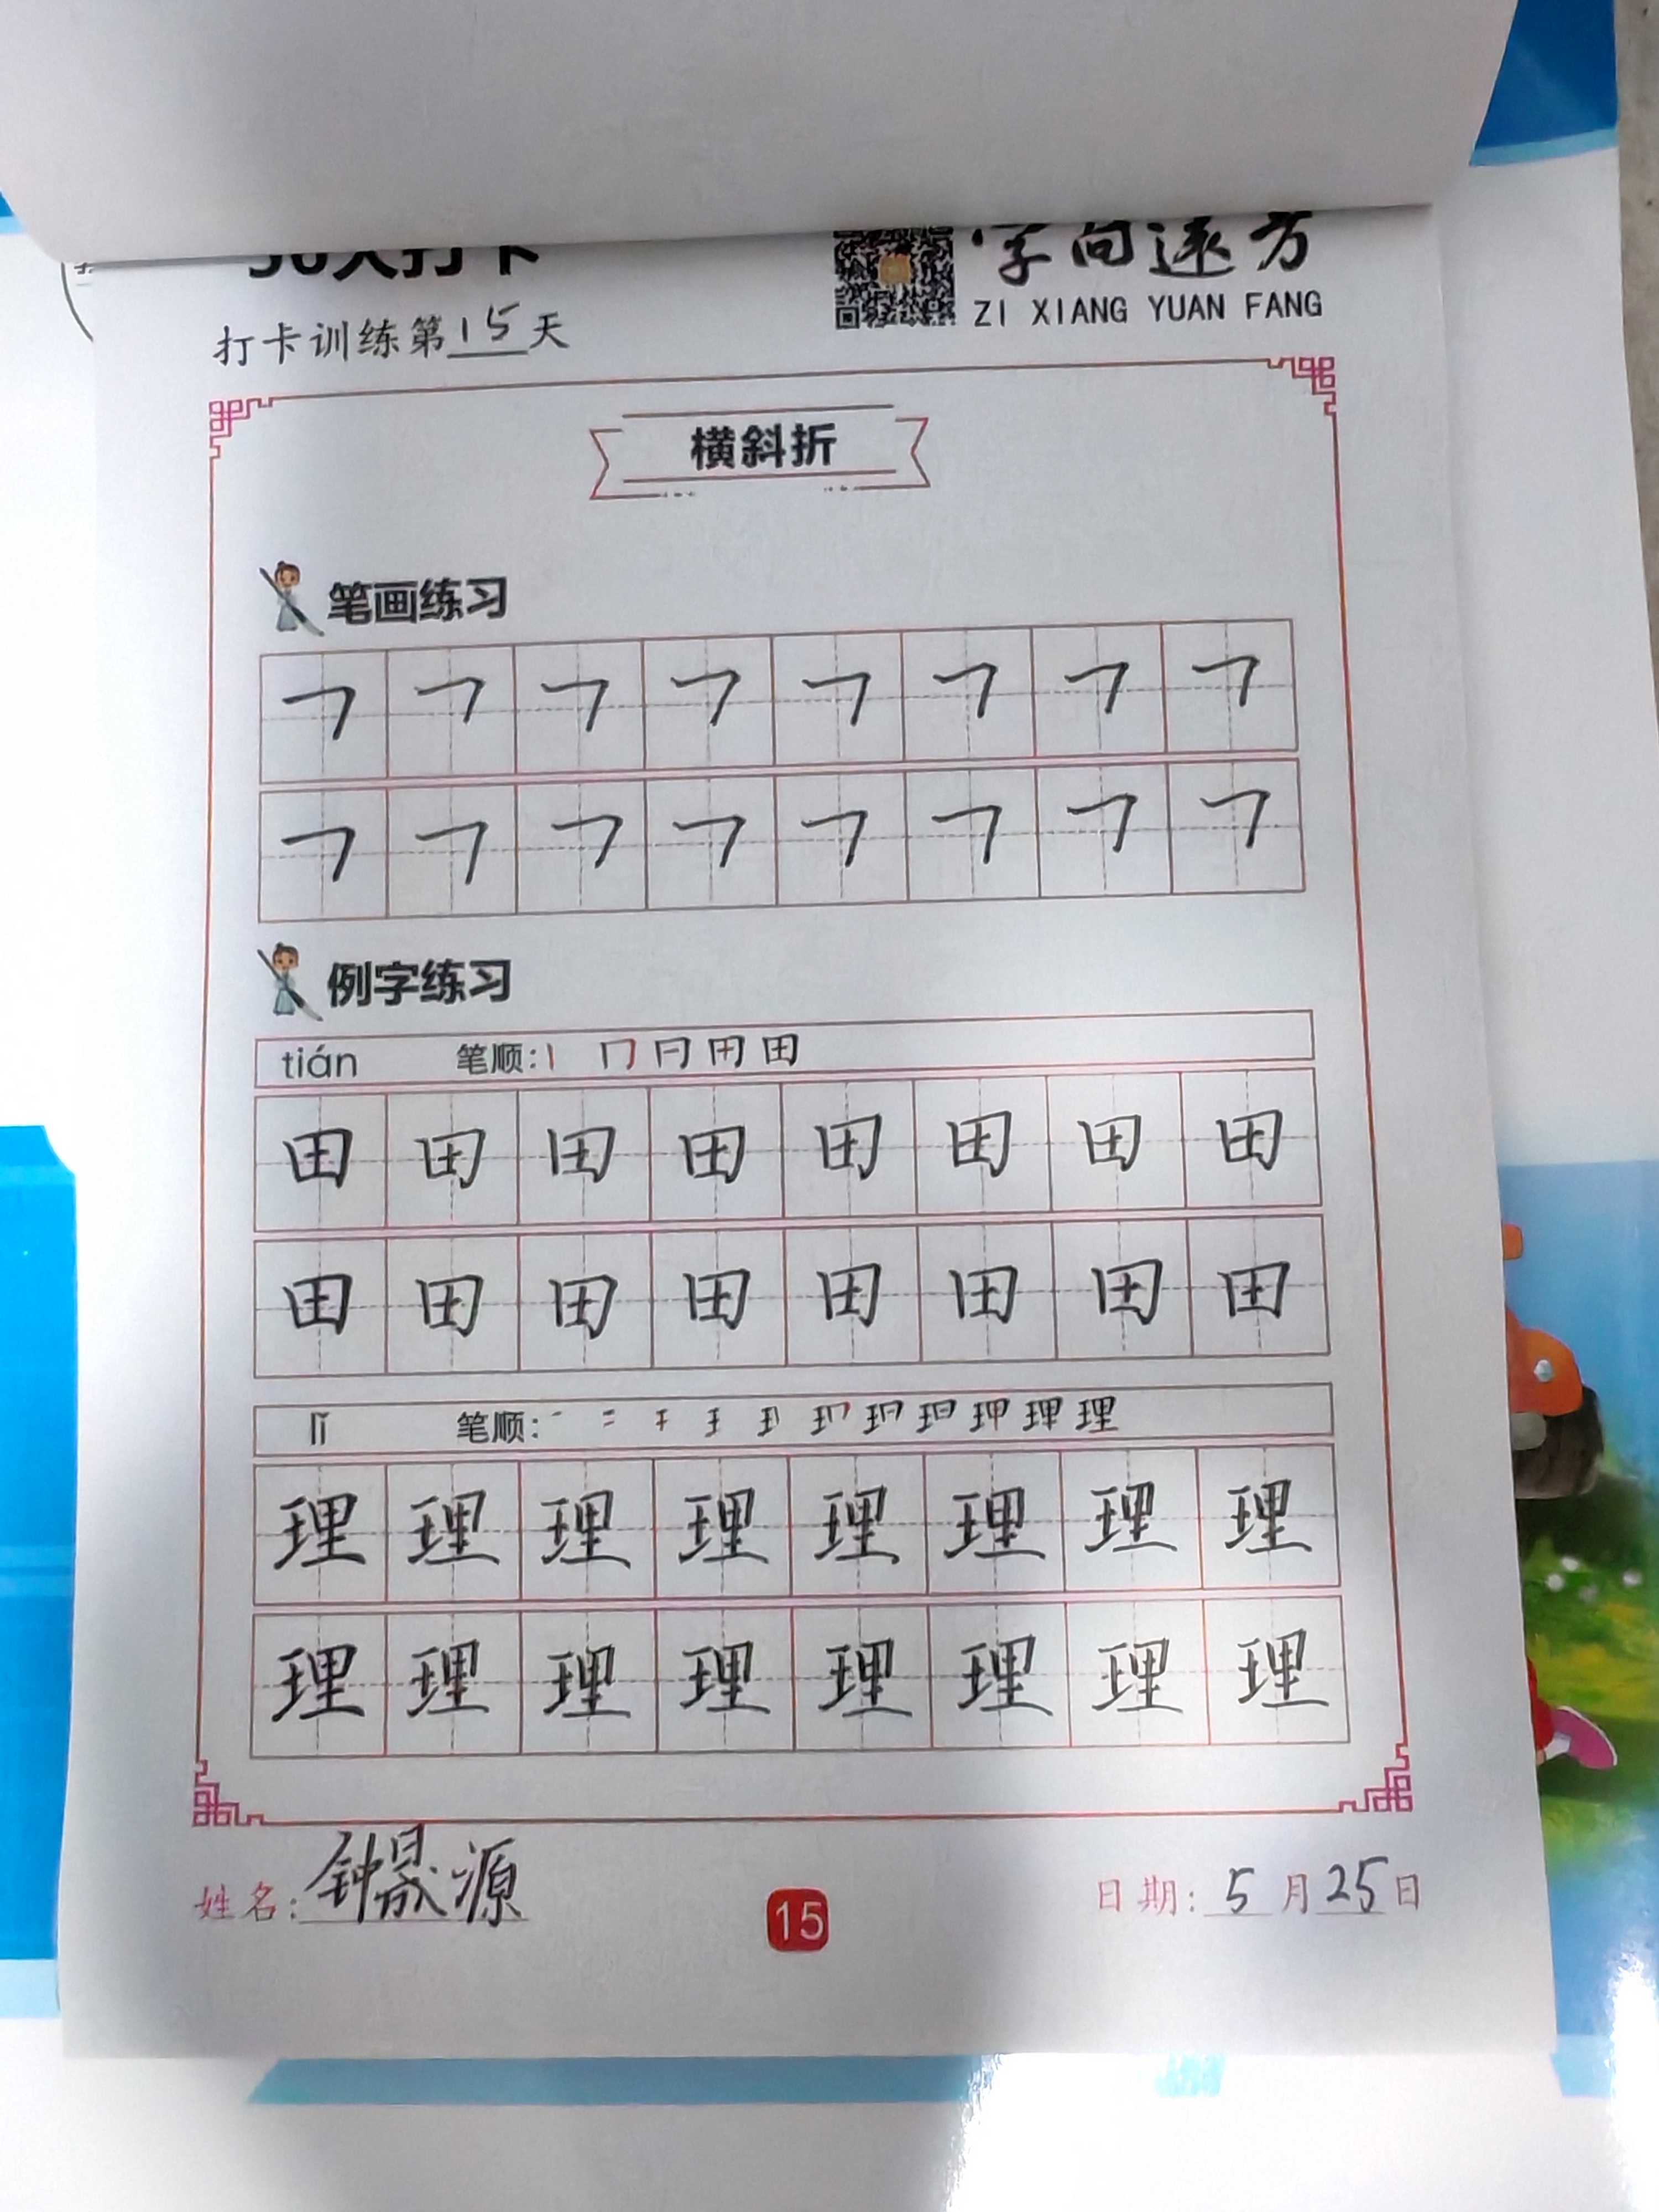 30天打卡
字向远方
ZI XIANG YUAN FANG
打卡训练第15天
横斜折
笔画练习
㇕ ㇕ ㇕ ㇕ ㇕ ㇕ ㇕ ㇕
㇕ ㇕ ㇕ ㇕ ㇕ ㇕ ㇕ ㇕
例字练习
tián 笔顺:丨 冂 日 田 田
田 田 田 田 田 田 田 田
田 田 田 田 田 田 田 田
lǐ 笔顺: 理
理 理 理 理 理 理 理 理
理 理 理 理 理 理 理 理
姓名:钟晟源
15
日期:5月25日